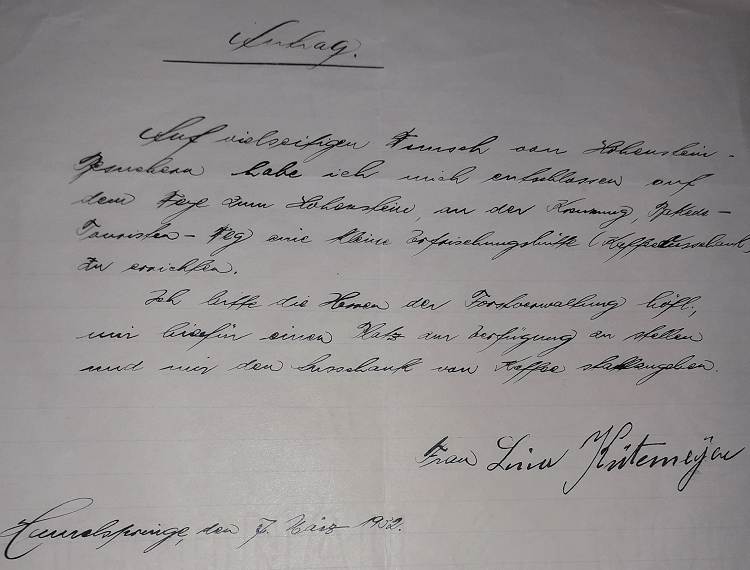 Antrag.
Auf vielseitigen Wunsch von Hohenstein-
Besuchern habe ich mich entschlossen auf
dem Wege zum Hohenstein, an der Kreuzung,
Touristen-Weg eine kleine Erfrischungshütte (Kaffeeausschank)
zu errichten.
Ich bitte die Herren der Forstverwaltung höfl.,
mir hierfür einen Platz zur Verfügung zu stellen
und mir den Ausschank von Kaffee stattzugeben.
Frau Lina Kütemeÿer
Hamelspringe, den 7. März 1952.